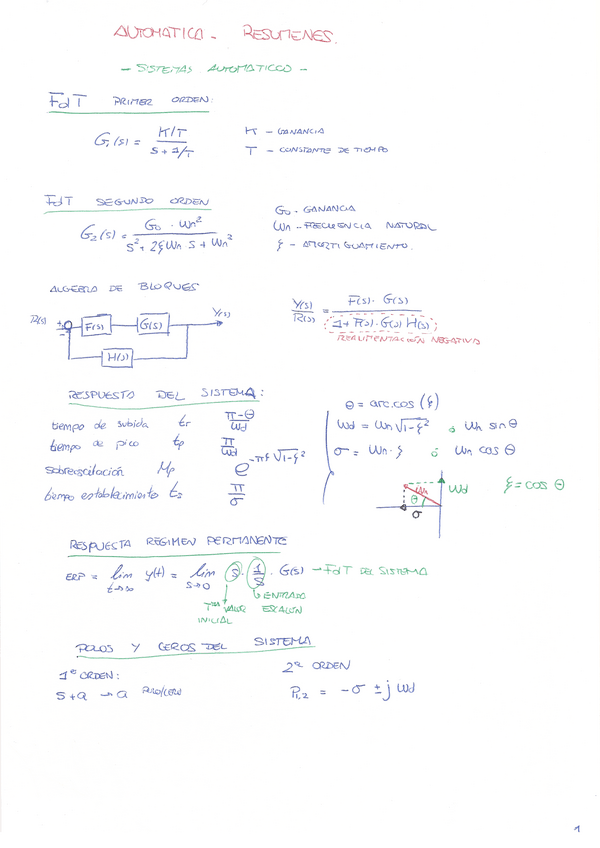 AUTOMATICA - RESUMENES.
- SISTEMAS AUTOMATICOS -
FdT PRIMER ORDEN:
G1(s) = K/T / (s + 1/T)
K - GANANCIA
T - CONSTANTE DE TIEMPO
FdT SEGUNDO ORDEN
G2(s) = G0 · Wn² / (s² + 2ξWn · s + Wn²)
G0 - GANANCIA
Wn - FRECUENCIA NATURAL
ξ - AMORTIGUAMIENTO.
ALGEBRA DE BLOQUES
R(s) + - F(s) G(s) Y(s)
H(s)
Y(s)/R(s) = F(s) · G(s) / (1 + F(s) · G(s) H(s))
REALIMENTACIÓN NEGATIVA
RESPUESTA DEL SISTEMA:
tiempo de subida tr π-θ/Wd
tiempo de pico tp π/Wd
sobreoscilación Mp e^-πξ/√1-ξ²
tiempo establecimiento ts π/σ
θ = arc.cos (ξ)
Wd = Wn √1-ξ² ó Wn sin θ
σ = Wn · ξ ó Wn cos θ
Wn Wd
θ
σ
ξ = cos θ
RESPUESTA REGIMEN PERMANENTE
ERP = lim t→∞ y(t) = lim s→0 s · 1/s · G(s) → FdT DEL SISTEMA
ENTRADA
ESCALÓN
Tma VALOR
INICIAL
POLOS Y CEROS DEL SISTEMA
1er ORDEN:
s+a → a POLO/CERO
2º ORDEN
P1,2 = -σ ± j Wd
1